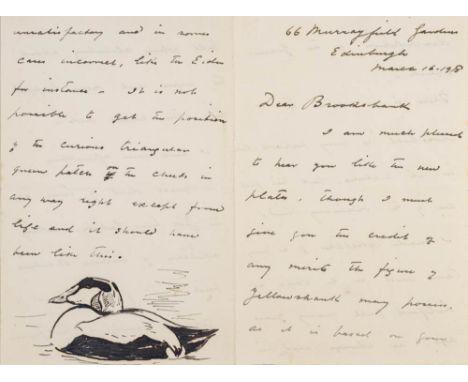 unsatisfactory and in some
cases incorrect, like the Eider
for instance - It is not
possible to get the position
of the curious triangular
green patch on the cheeks in
any way right except from
life and it should have
been like this.
66 Murrayfield Gardens
Edinburgh
March 16 -
Dear Brooksbank
I am much pleased
to hear you like the new
plates, though I must
give you the credit of
any merits the figure of
Yellowshank may possess.
as it is based on your